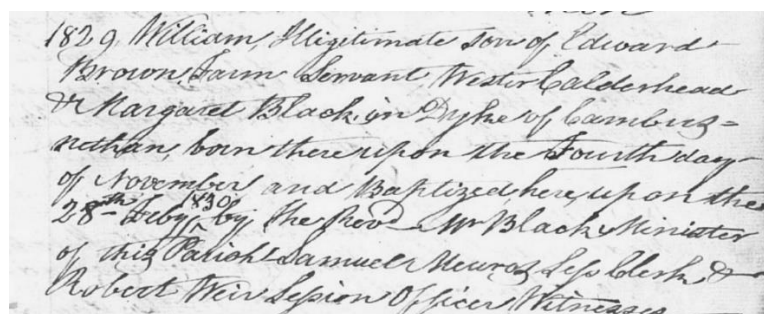 1829 William, Illigitimate Son of Edward
Brown, Farm Servant Wester Calderhead
& Margaret Black, in Dyke of Cambus=
nethan, born there upon the Fourth day
of November and Baptized here, upon the
28th Feby 1830 by the Revd Mr Black Minister
of this Parish Samuel Sess Clerk &
Robert Weir Session Officer Witnesses